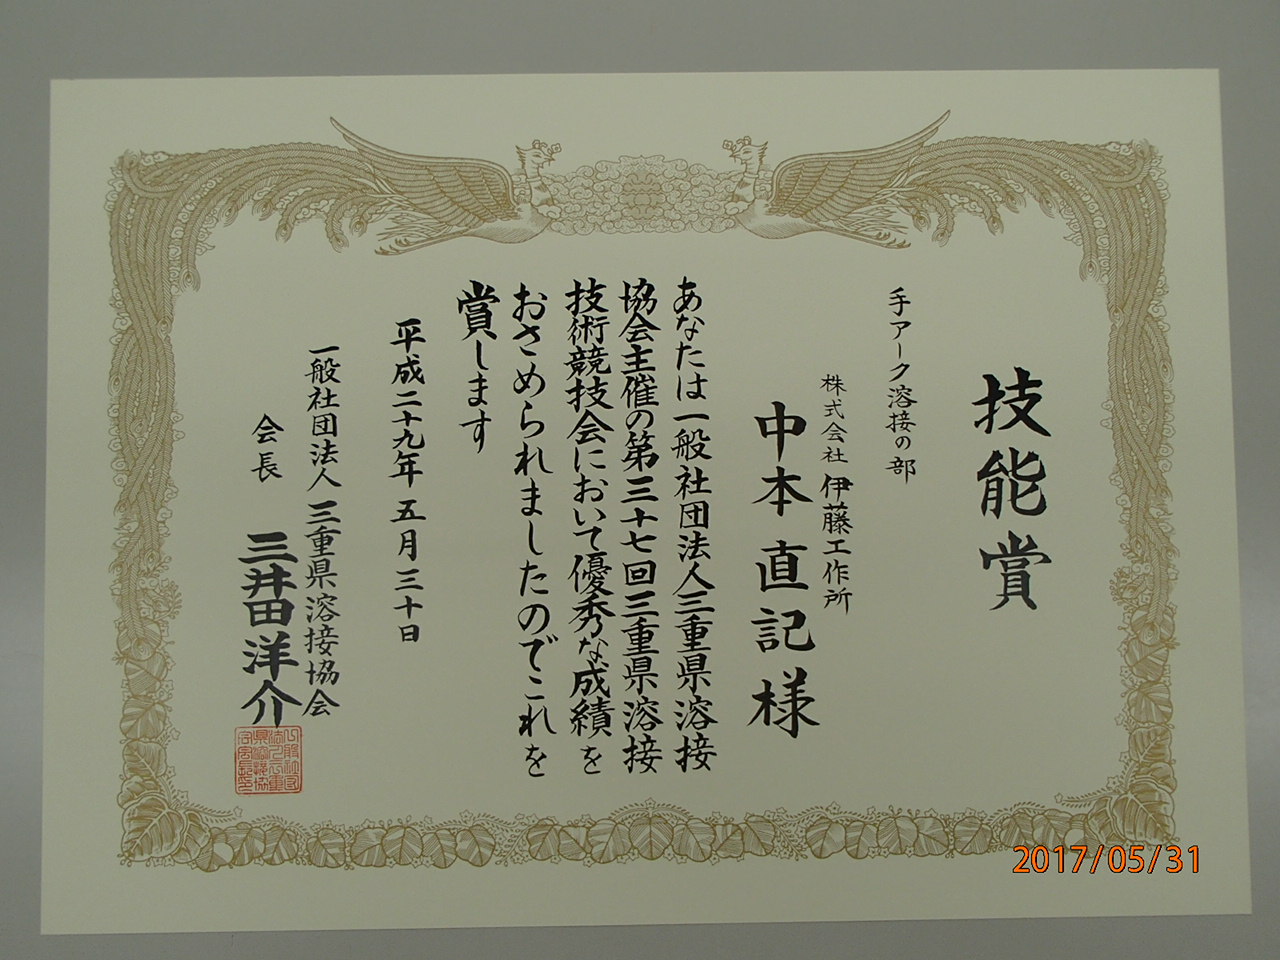 技能賞
手アーク溶接の部
株式会社 伊藤工作所
中本直記様
あなたは一般社団法人三重県溶接
協会主催の第三十七回三重県溶接
技術競技会において優秀な成績を
おさめられましたのでこれを
賞します
平成二十九年五月三十日
一般社団法人 三重県溶接協会
会長 三井田洋介
2017/05/31